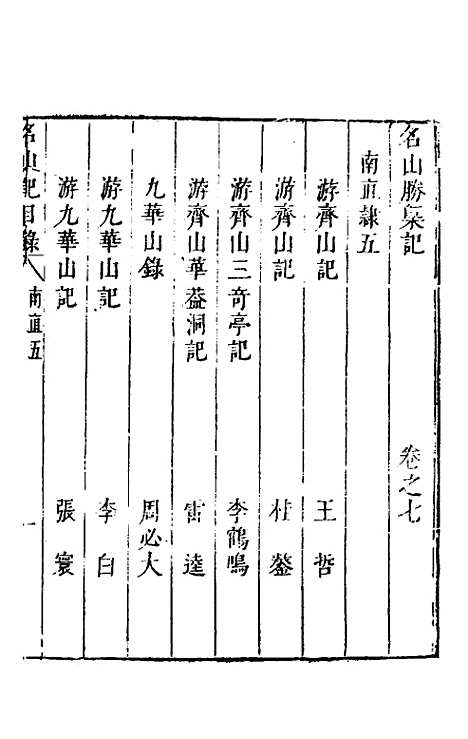 名山勝槩記 卷之七
南直隷五
游齊山記 王哲
游齊山記 桂鏊
游齊山三奇亭記 李鶴鳴
游齊山華葢洞記 雷逵
九華山錄 周必大
游九華山記 李白
游九華山記 張寰
名山記目錄 南直五 一